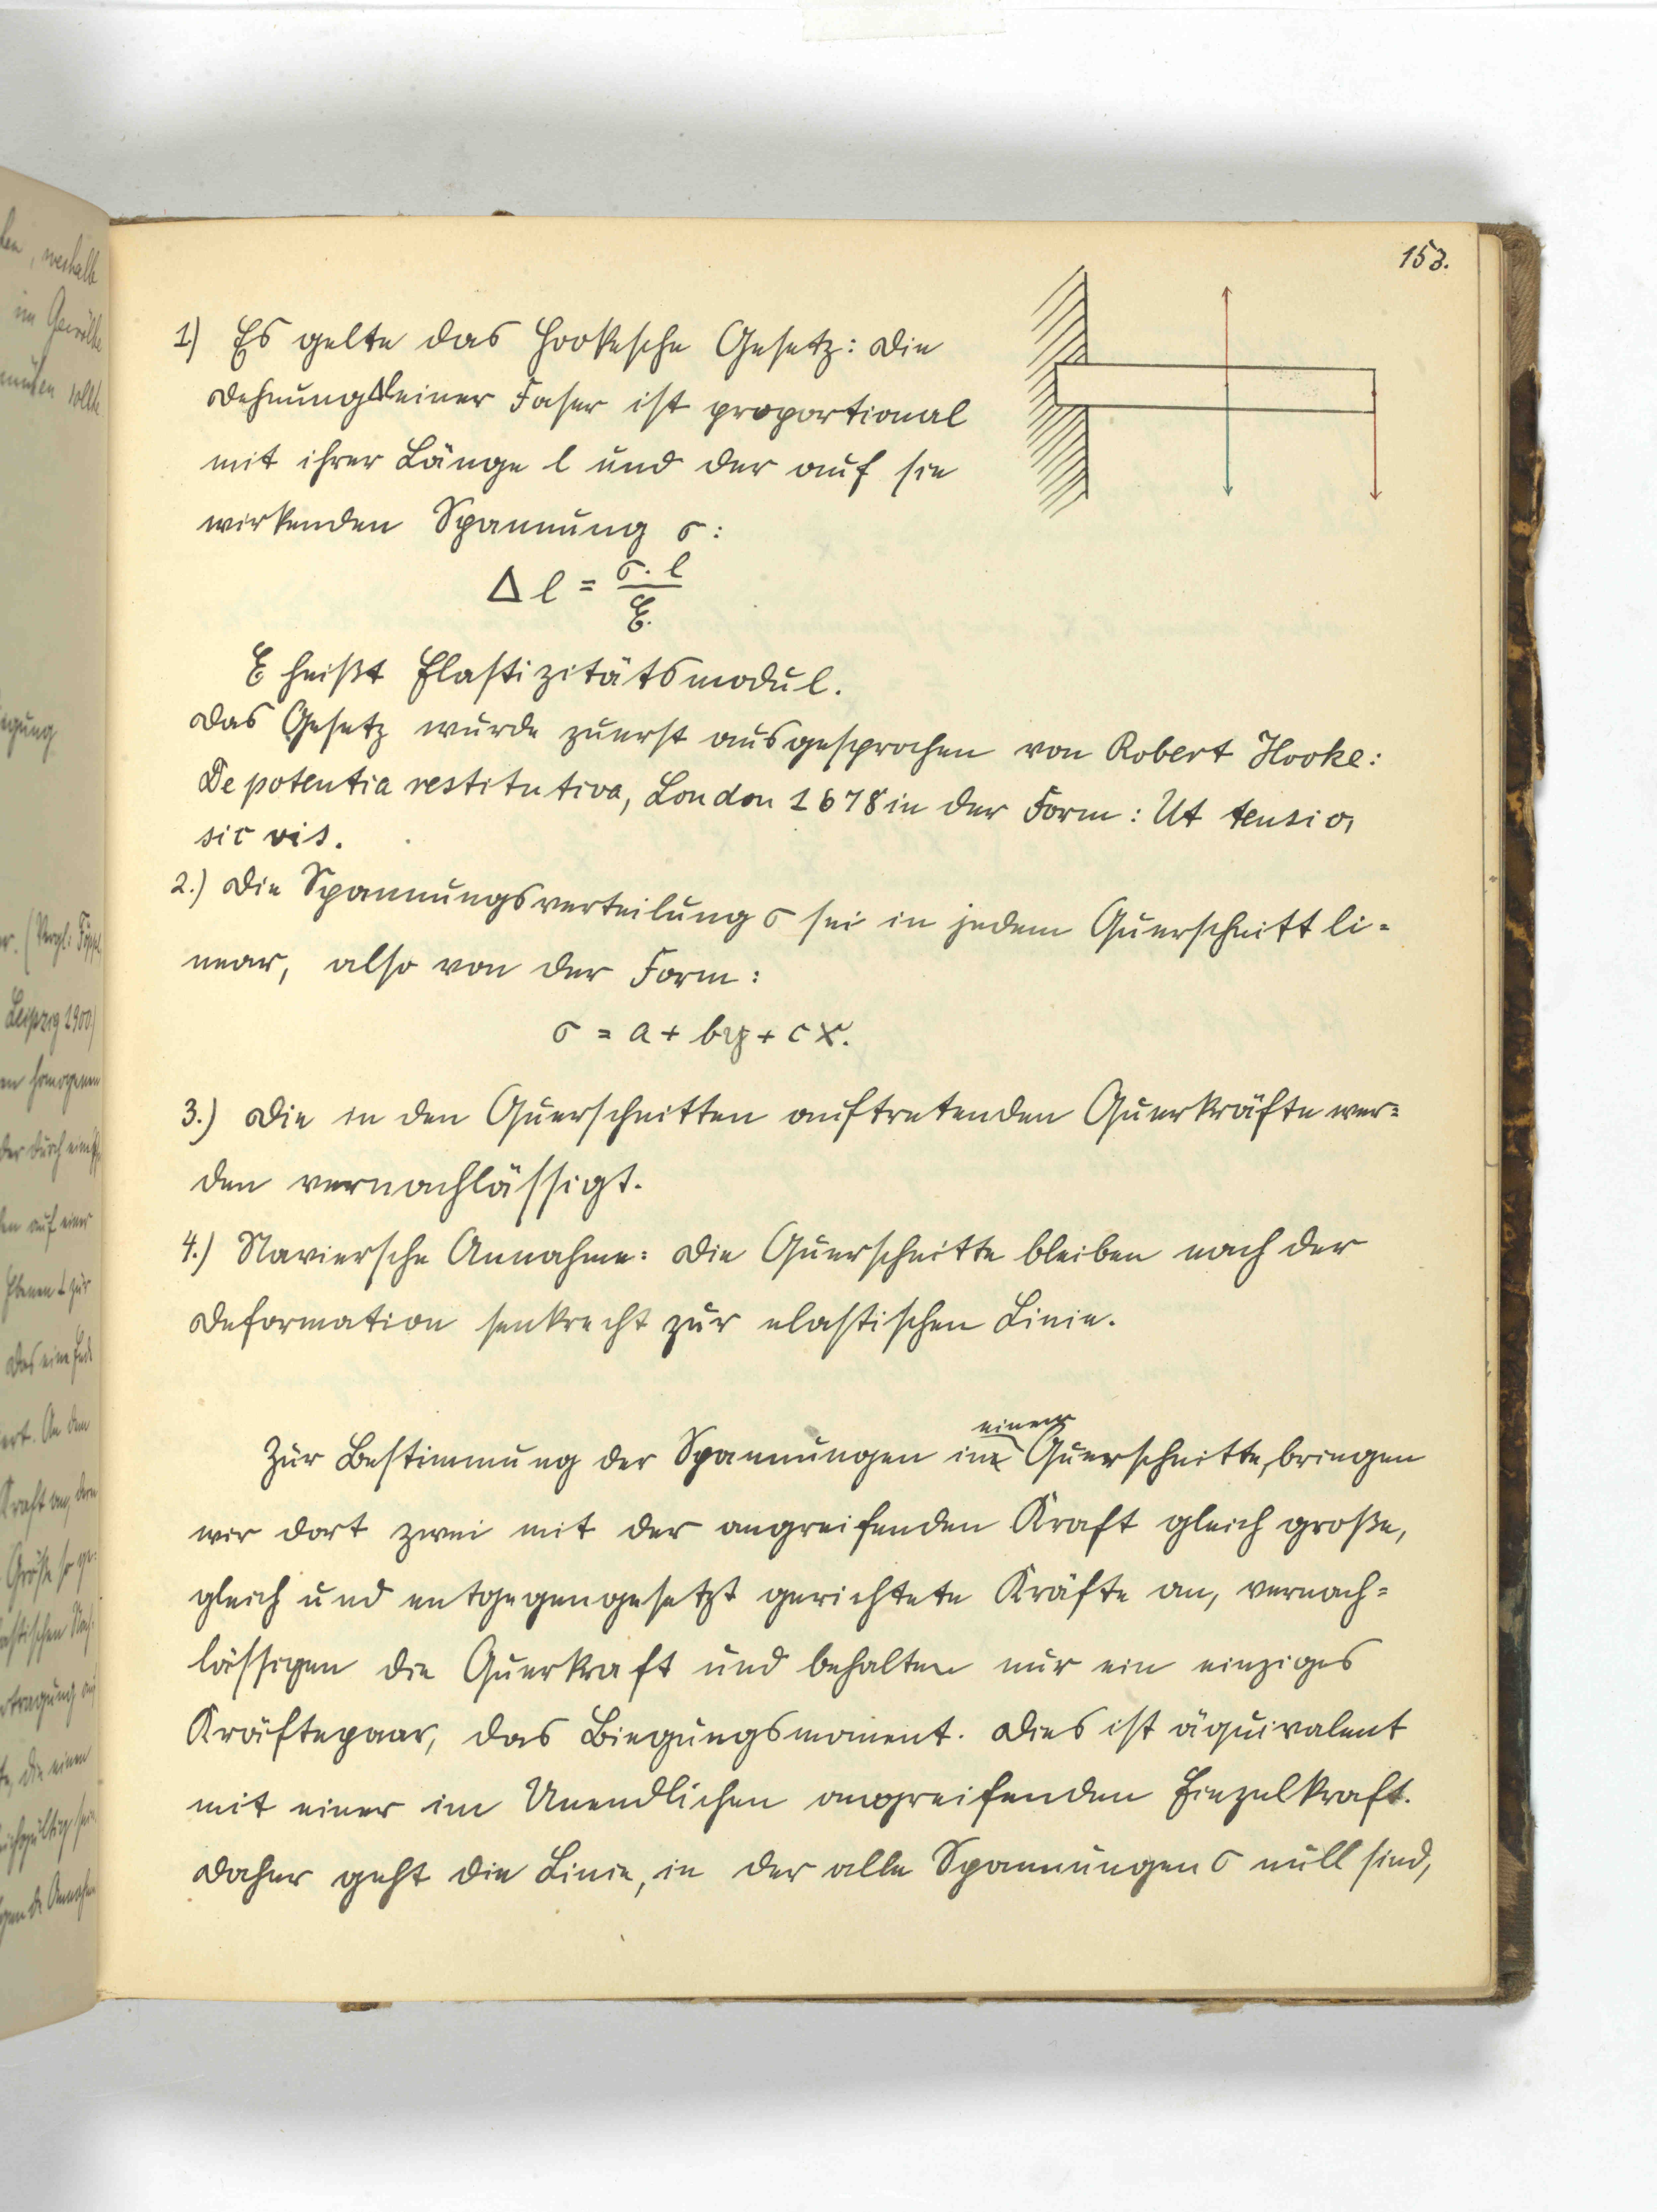 153.
1.) Es gelte das Hookesche Gesetz: Die
Dehnung Δl einer Faser ist proportional
mit ihrer Länge l und der auf sie
wirkenden Spannung σ:
Δl = σ·l / E.
E heißt Elastizitätsmodul.
Das Gesetz wurde zuerst ausgesprochen von Robert Hooke:
De potentia restitutiva, London 1678 in der Form: Ut tensio,
sic vis.
2.) Die Spannungsverteilung σ sei in jedem Querschnitt li-
near, also von der Form:
σ = a + by + cx.
3.) Die in den Querschnitten auftretenden Querkräfte wer-
den vernachlässigt.
4.) Naviersche Annahme: Die Querschnitte bleiben nach der
Deformation senkrecht zur elastischen Linie.
einem
Zur Bestimmung der Spannungen in Querschnitte, bringen
wir dort zwei mit der angreifenden Kraft gleich große,
gleich und entgegengesetzt gerichtete Kräfte an, vernach-
lässigen die Querkraft und behalten nur ein einziges
Kräftepaar, das Biegungsmoment. Dies ist äquivalent
mit einer im Unendlichen angreifenden Einzelkraft.
Daher geht die Linie, in der alle Spannungen σ null sind,
weshalb
im Gewölbe
sollte
Leipzig 1900)
homogenen
auf einer
Das eine Ende
An dem
Kraft an,
die einen